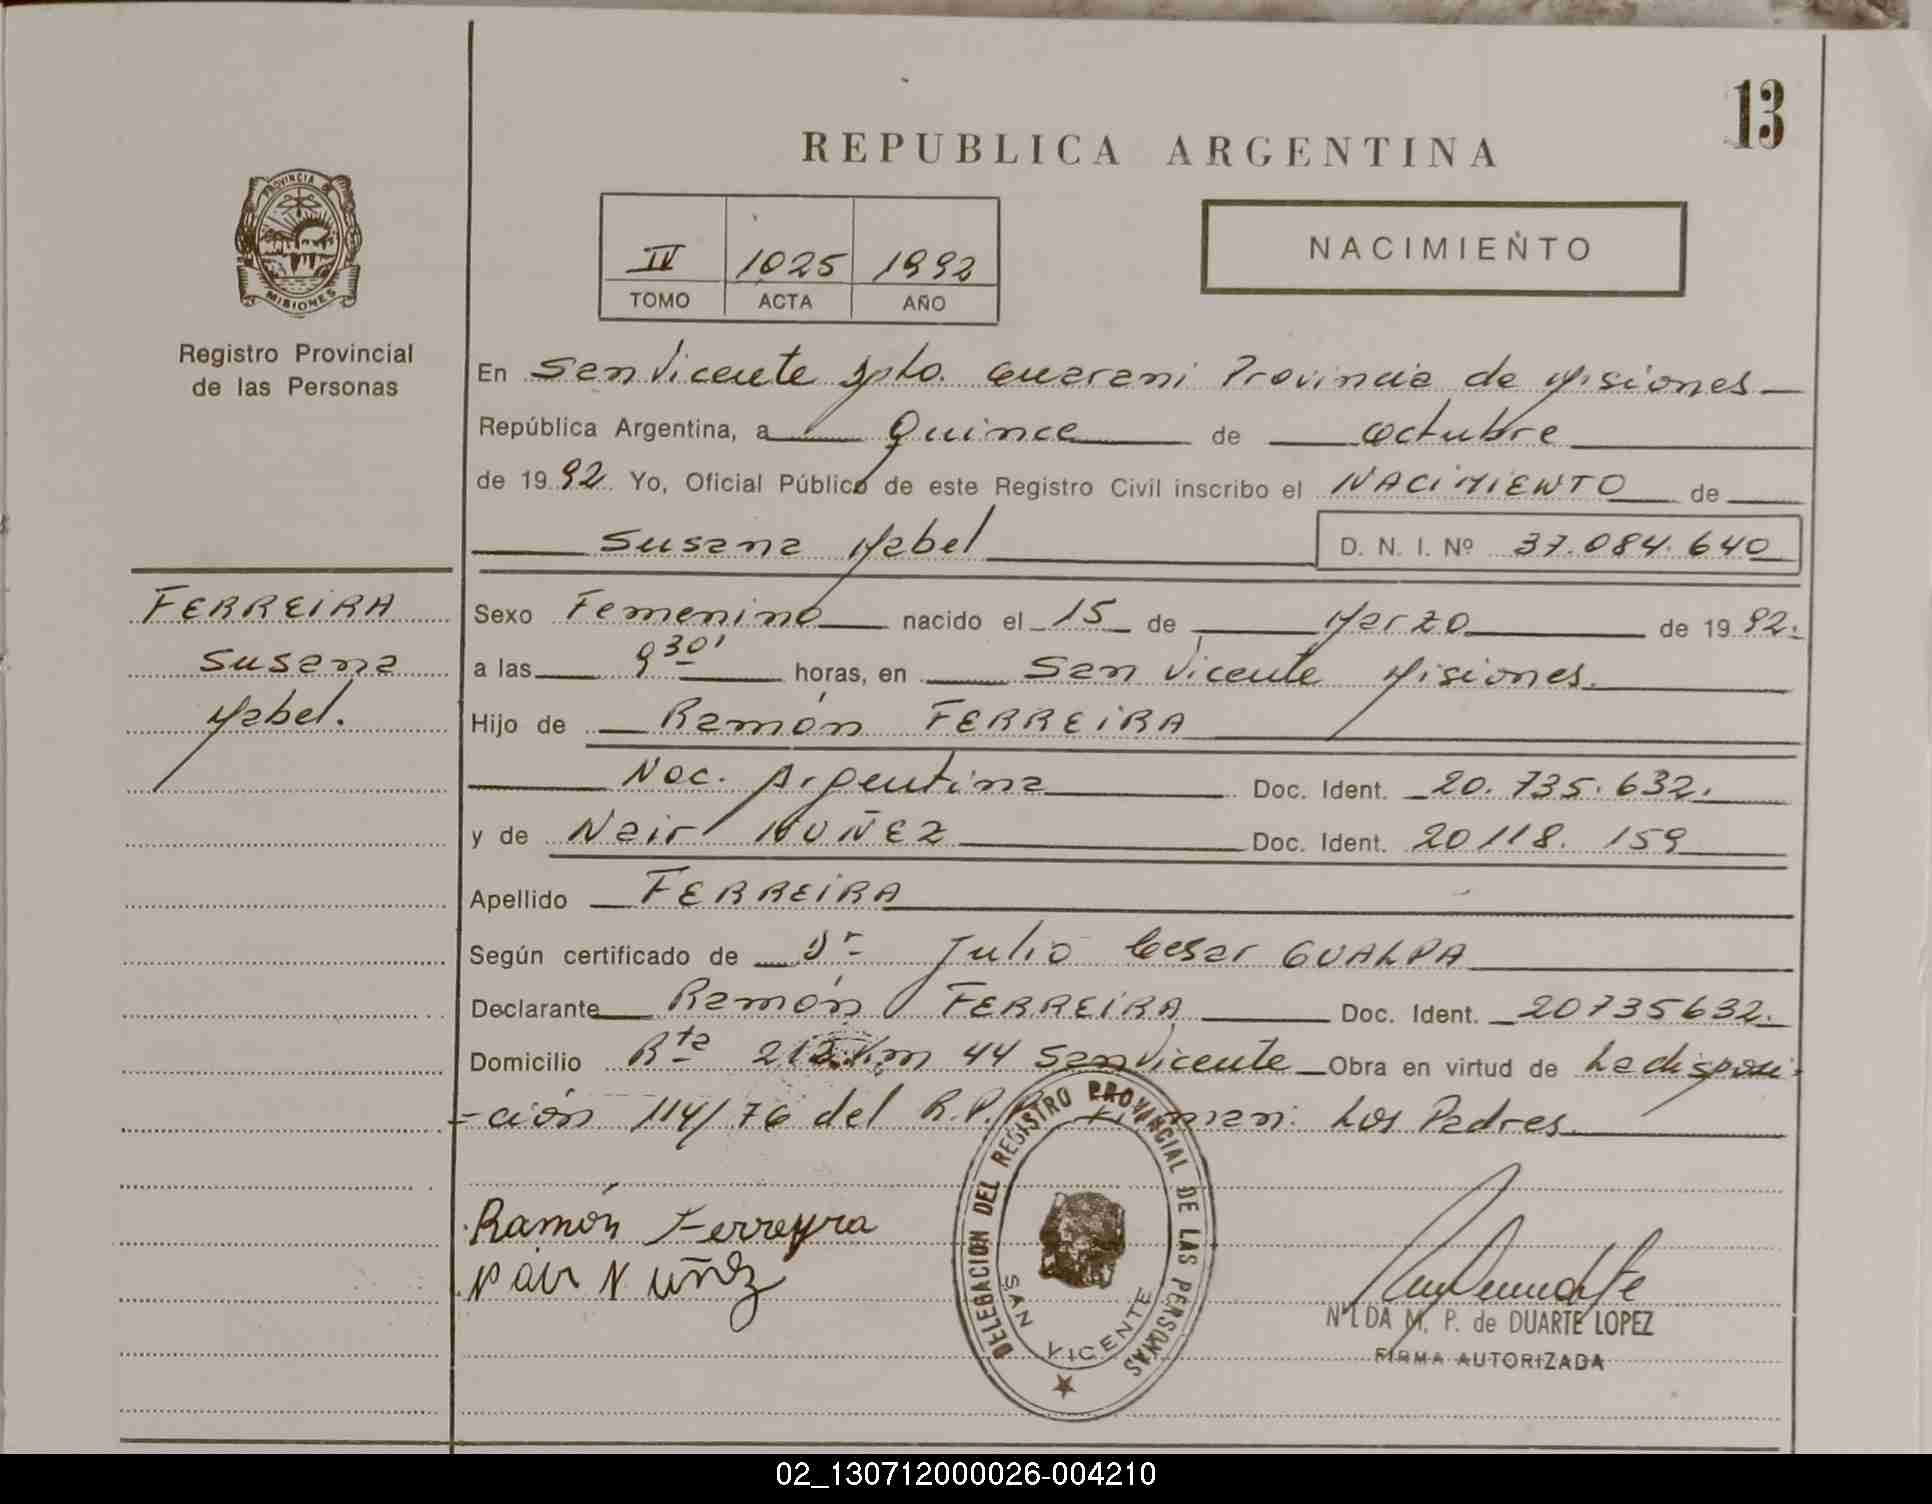 13
REPUBLICA ARGENTINA
PROVINCIA DE
MISIONES
Registro Provincial
de las Personas
IV 1025 1992
TOMO ACTA AÑO
NACIMIENTO
En San Vicente Dpto. Guarani Provincia de Misiones
República Argentina, a Quince de octubre
de 1992 Yo, Oficial Público de este Registro Civil inscribo el NACIMIENTO de
Susana Mabel D. N. I. Nº 37.084.640
FERREIRA
Susana
Mabel.
Sexo Femenino nacido el 15 de Marzo de 1992.
a las 9 30' horas, en San Vicente Misiones.
Hijo de Ramón FERREIRA
Nac. Argentina Doc. Ident. 20.735.632.
y de Nair NUÑEZ Doc. Ident. 20118.159
Apellido FERREIRA
Según certificado de Dr Julio Cesar GUALPA
Declarante Ramón FERREIRA Doc. Ident. 20735632.
Domicilio Rta 212 Km 44 San Vicente Obra en virtud de La disposi-
-ción 114/76 del R.P.P. Firman: Los Padres
Ramón Ferreyra
Nair Nuñez
DELEGACION DEL REGISTRO PROVINCIAL DE LAS PERSONAS
SAN VICENTE
NILDA M. P. de DUARTE LOPEZ
FIRMA AUTORIZADA
02_130712000026-004210